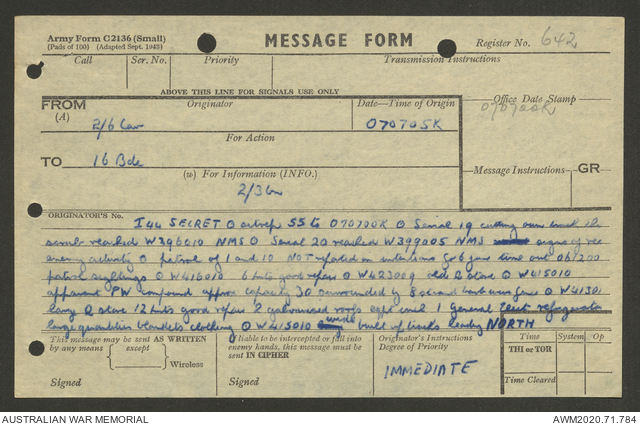 Army Form C2136 (Small)
(Pads of 100) (Adapted Sept. 1943)
MESSAGE FORM
Register No. 642
Call
Ser. No.
Priority
Transmission Instructions
ABOVE THIS LINE FOR SIGNALS USE ONLY
FROM
(A)
Originator
Date—Time of Origin
Office Date Stamp
2/6 Cav
070705K
070700K
For Action
TO
16 Bde
(W) For Information (INFO.)
Message Instructions
GR
ORIGINATOR'S No.
I44 SECRET O sitrep 55 to 070700K O Serial 19 cutting own
scrub reached W396010 NMS O Serial 20 reached W399005 NMS signs of
enemy activity O patrol of 1 and 10 NOT reported in time out 061200
patrol O W416010 6 huts good repair O W423009 old store O W415010
apparent PW compound approx capacity 30 surrounded by 8 wire O
O store 12 huts good repair 2 galvanised roofs 1 General
large quantities blankets clothing O W415010 built up tracks NORTH
This message may be sent AS WRITTEN
by any means { except } Wireless
Signed
If liable to be intercepted or fall into
enemy hands, this message must be
sent IN CIPHER
Signed
Originator's Instructions
Degree of Priority
IMMEDIATE
Time
System
Op
THI or TOR
Time Cleared
AUSTRALIAN WAR MEMORIAL
AWM2020.71.784